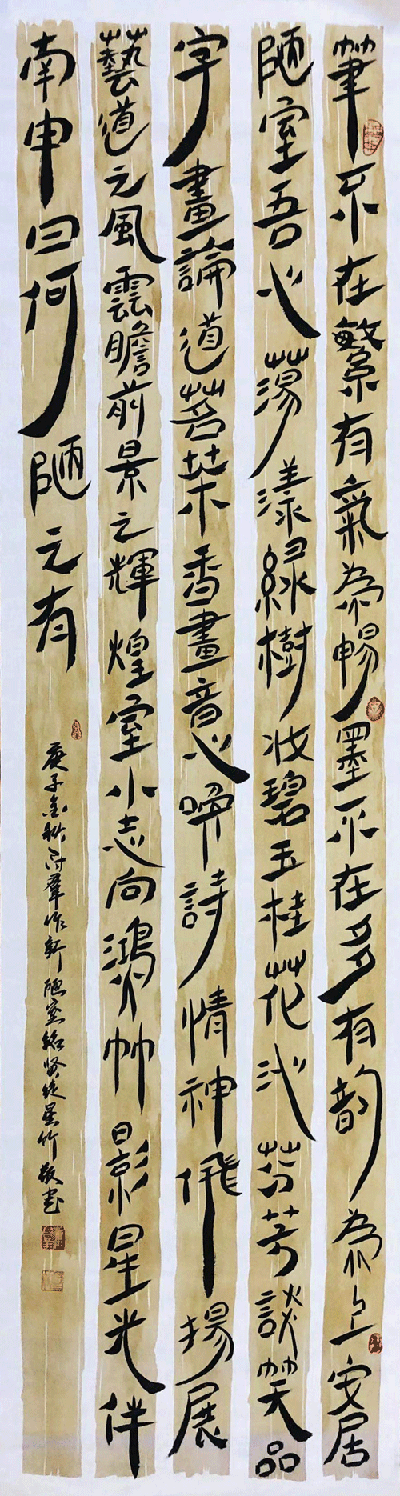 筆不在繁有氣為暢墨不在多有韵為上安居
陋室吾心蕩漾綠樹妝碧玉桂花沁芬芳談笑品
字畫論道茗茶香畫意喚詩情神飛揚展
藝道之風雲瞻前景之輝煌室小志向鴻竹影星光伴
南申曰何陋之有
庚子金秋 作軒陋室銘 竹敬書